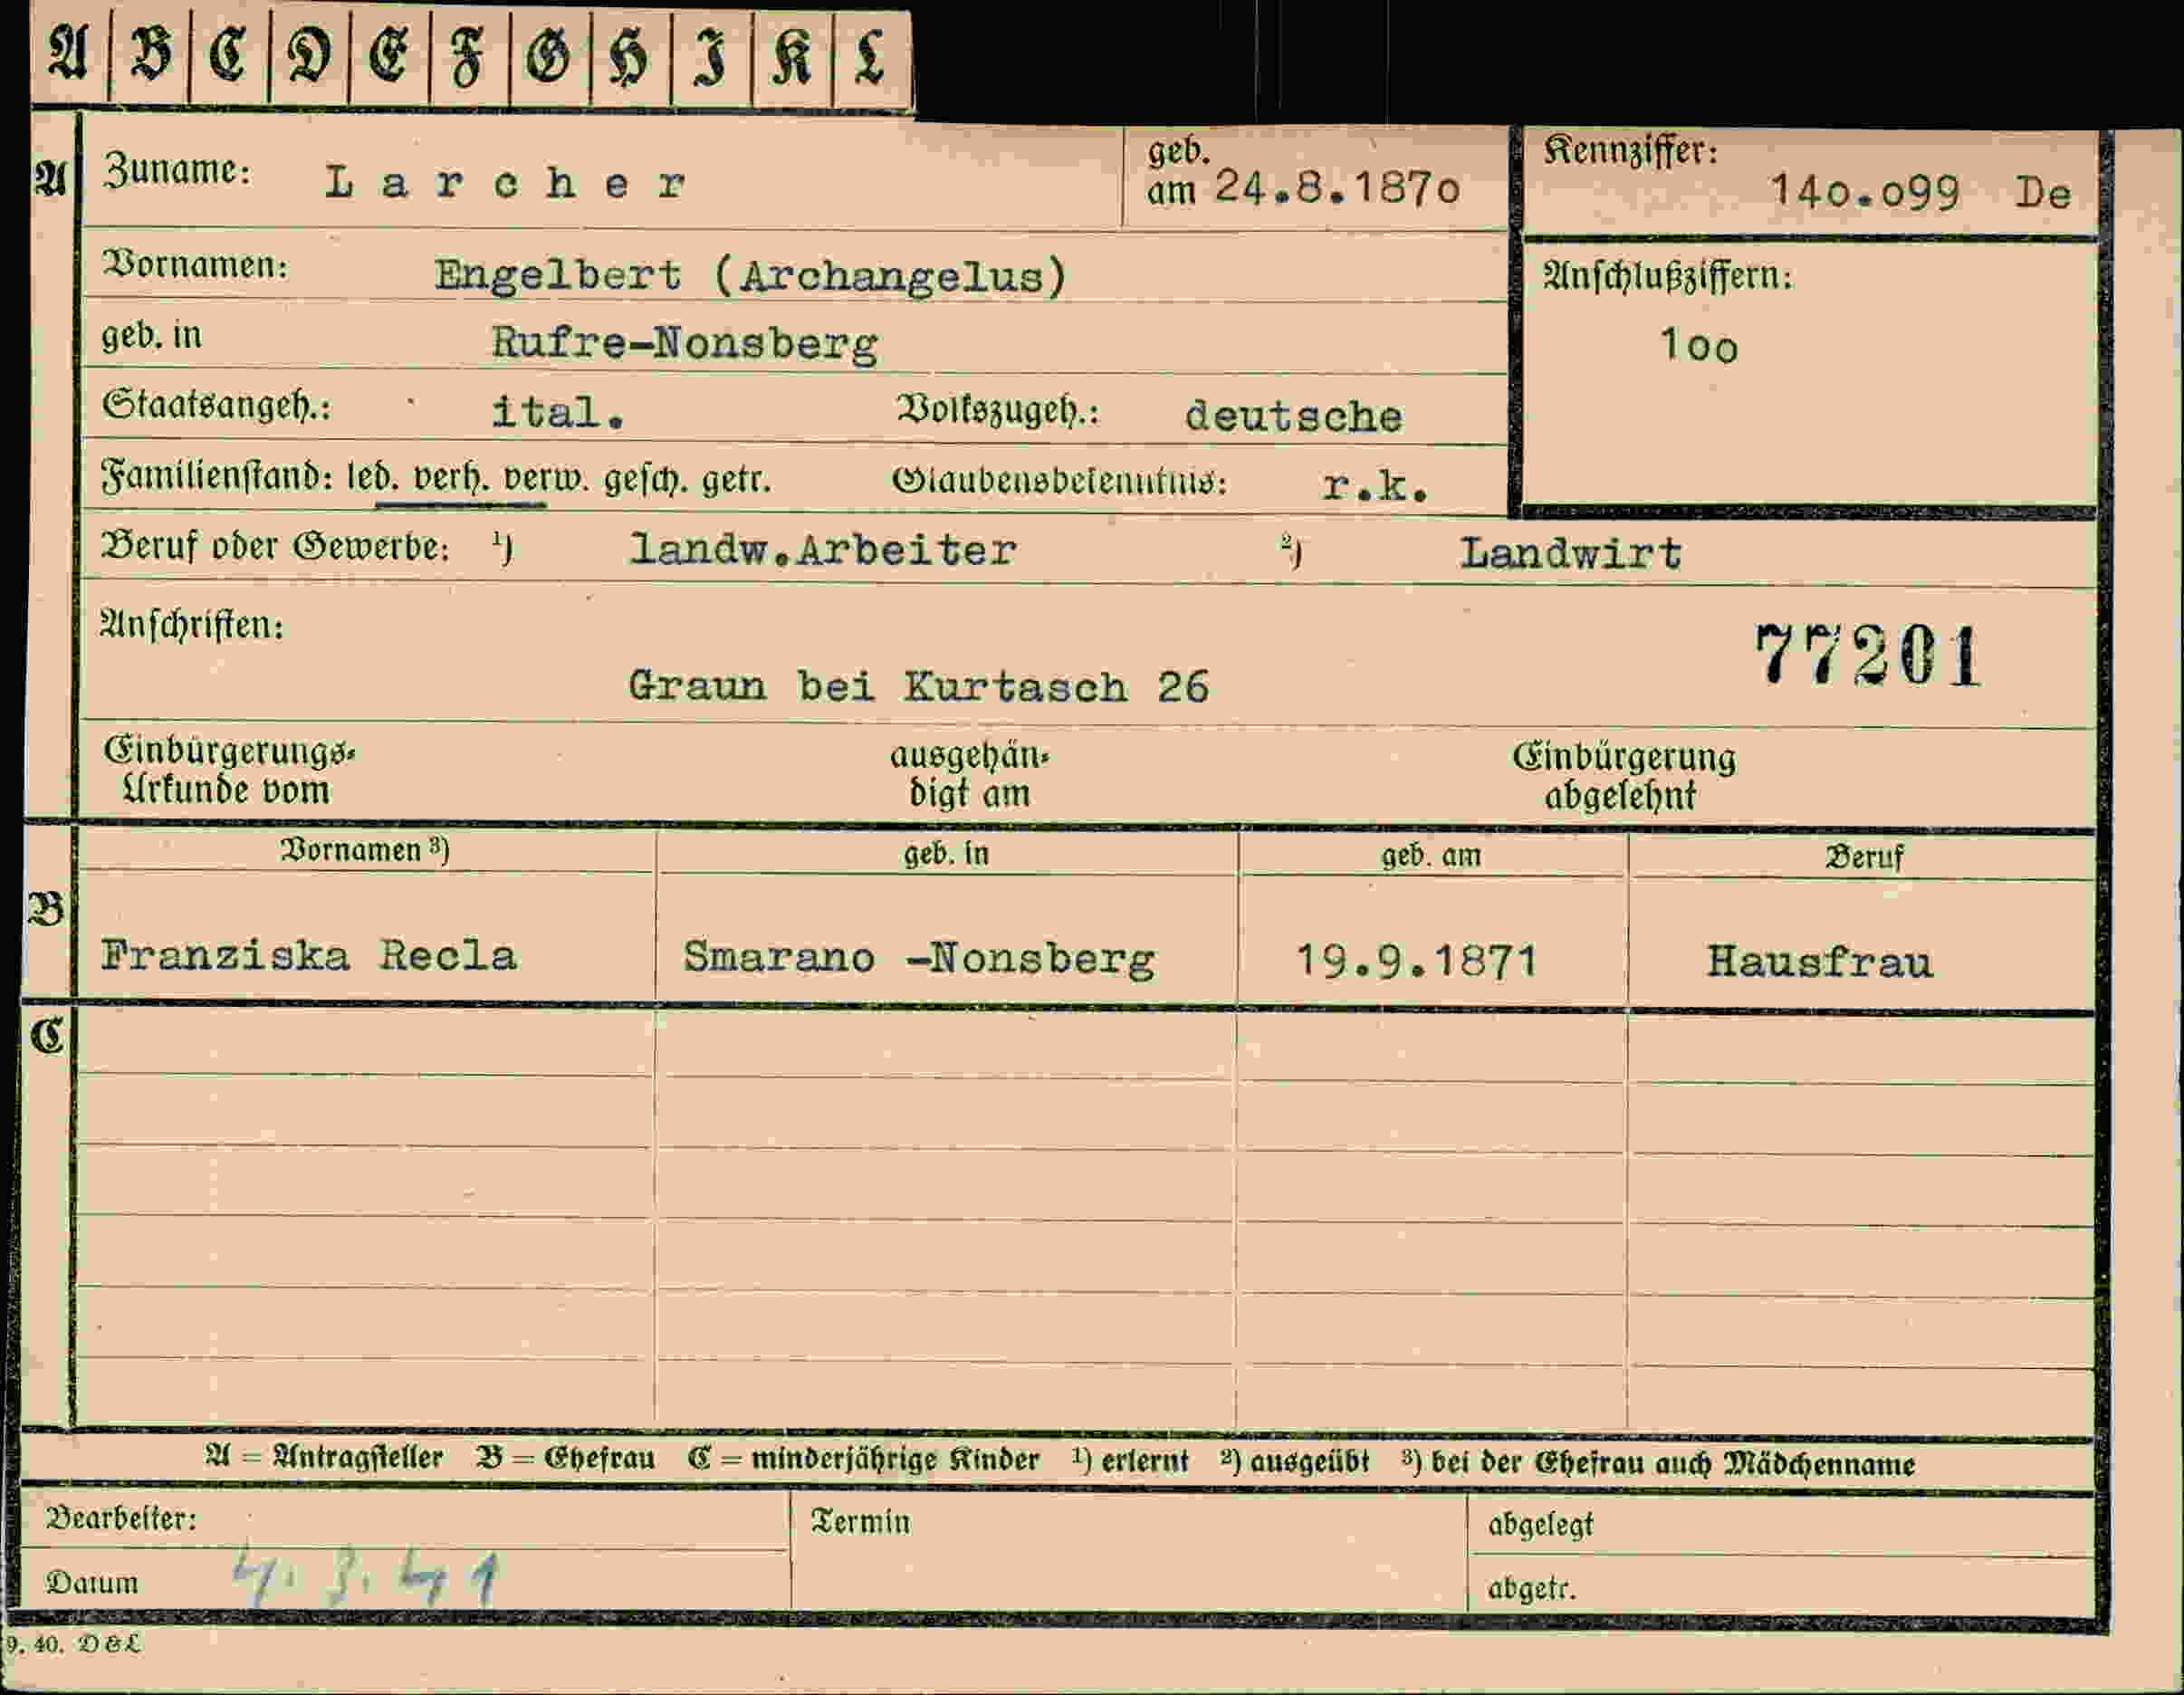 A B C D E F G H I K L
A Zuname: Larcher geb. am 24.8.187o Kennziffer: 14o.o99 De
Vornamen: Engelbert (Archangelus) Anschlußziffern:
geb. in Rufre-Nonsberg 1oo
Staatsangeh.: ital. Volkszugeh.: deutsche
Familienstand: led. verh. verw. gesch. getr. Glaubensbekenntnis: r.k.
Beruf oder Gewerbe: ¹) landw.Arbeiter ²) Landwirt
Anschriften: 77201
Graun bei Kurtasch 26
Einbürgerungs- ausgehän- Einbürgerung
Urkunde vom digt am abgelehnt
Vornamen ³) geb. in geb. am Beruf
B Franziska Recla Smarano -Nonsberg 19.9.1871 Hausfrau
C
A = Antragsteller B = Ehefrau C = minderjährige Kinder ¹) erlernt ²) ausgeübt ³) bei der Ehefrau auch Mädchenname
Bearbeiter: Termin abgelegt
Datum 4. 3. 41 abgetr.
9. 40. D & L